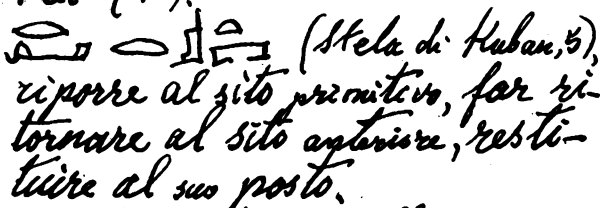 (Stela di Kuban, 5),
riporre al sito primitivo, far ri-
tornare al sito anteriore, resti-
tuire al suo posto.